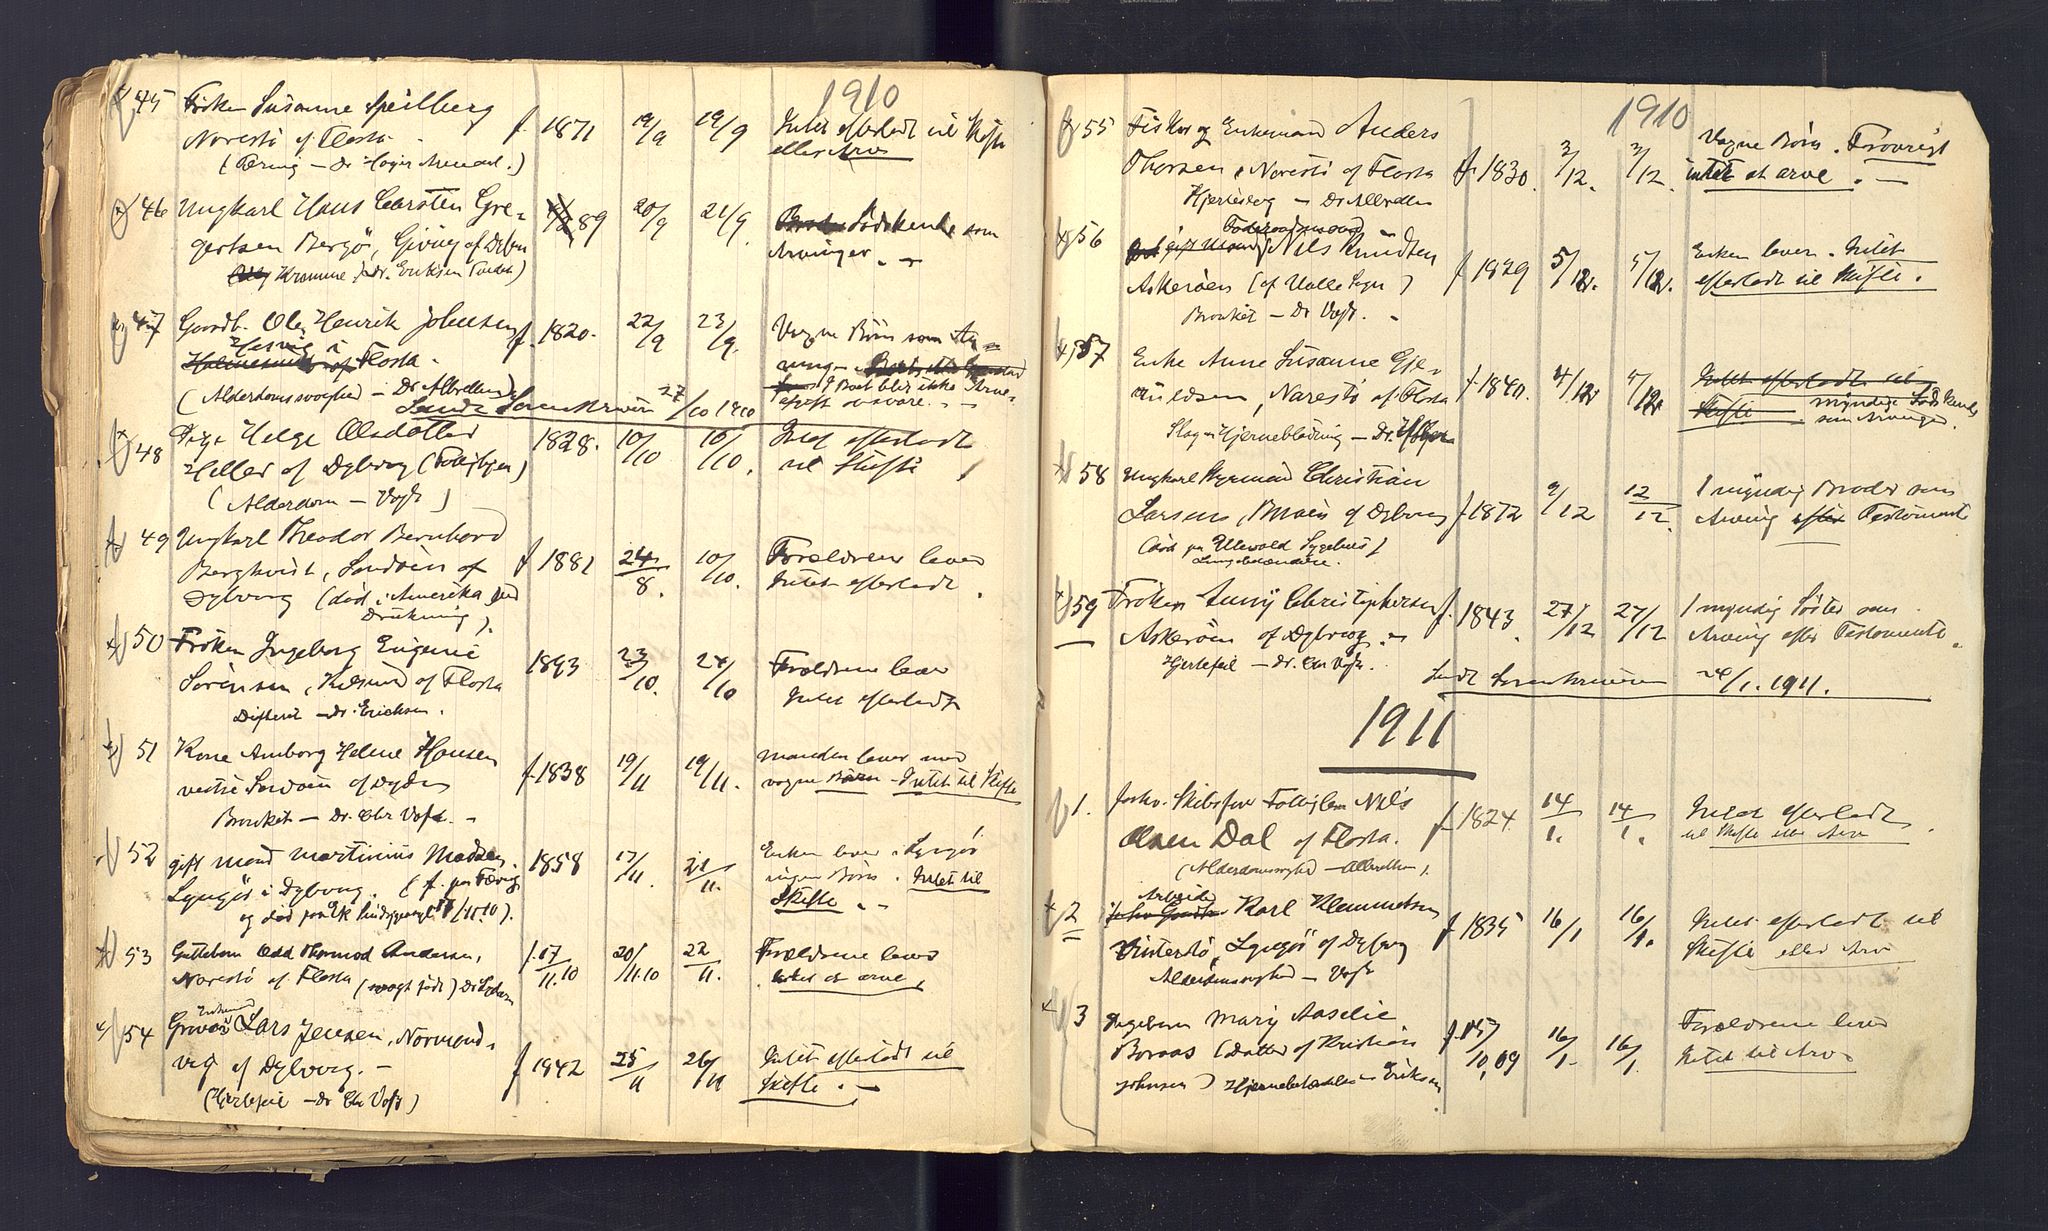 1910
45 Frøken Susanne Speilberg
Narestø af Flosta f. 1871 19/9 19/9 Intet efterladt til Skifte
eller Arv
(Tæring – Dr. Høyer Arendal.)
46 Ungkarl Hans Carsten Gre-
gertsen Bergø, Giving af Dybv. 89 20/9 21/9 Sødskende som
Arvinger. –
Krumme Dr. Eriksen
47 Gaardb. Ole Henrik Johnsen f. 1820. 22/9 23/9. Vogne Børn som Ar-
i Flosta.
(Alderdomssvaghed – Dr. Albrethsen) Boet blir ikke
Sendt Sorenskriveren 27/10 1910
48 Pige Helge Olsdatter 1828. 10/10 10/10. Intet efterladt
af Dybvog (Fattiglem) til Skifte
(Alderdom – Vogt)
49 Ungkarl Theodor Bernhard
Bergkvist, Sandøen af f 1881 24/8. 10/10. Forældrene lever
Dybvog (død i Amerika ved Intet efterladt.
Drukning).
50 Frøken Ingeborg Eugenie
Sørensen, af Flosta 1893 23/10. 24/10 Forældrene lever
Intet efterladt
Difterit – Dr. Erichsen.
51 Kone Anborg Helene Hansen
vestre Sandøen af Dybv. f 1838 19/11 19/11. Manden lever med
vogne Børn – Intet til Skifte
Bronkit – Dr. Chr Vogt. –
52 gift mand Martinius Madsen. 1858 17/11. 21/11. Enken lever i Lyngør
Lyngør i Dybvog. ingen Børn. Intet til
Skifte. –
53 Guttebarn Odd Thormod Andersen, f. 17/11.10 20/11.10 22/11. Forældrene lever
Narestø af Flosta (svagt født) intet at arve
54 Enkemand
Lars Jensen, Normands-
vig af Dybvog. – f 1842 25/11 26/11 Intet efterladt til
Skifte. –
(Hjertefeil – Dr Chr Vogt)
1910
55 Fisker og Enkemand Anders
Thorsen, Narestø af Flosta f. 1830. 3/12. 3/12. Vogne Børn. Forøvrigt
intet at arve. –
Hjerteslag – Dr Albrethsen
56 Føderaadsmand
gift Mand Nils Knudsen
Askerøen (af Holt Sogn) f 1829 5/12. 5/12. Enken lever. Intet
efterladt til Skifte.
Bronkit – Dr Vogt. –
57 Enke Anne Susanne Gje-
ruldsen, Narestø af Flosta f. 1840. 4/12 4/12 Intet efterladt til
Skifte myndige Sødskende
som Arvinger.
Slag – Hjerneblødning – Dr.
58 Ungkarl Styrmand Christian
Larsen, af Dybvog f 1872 9/12 12/12. 1 myndig Broder som
Arving efter Testament
(død paa Ullevold Sygehus)
59 Frøken Anny Christophersen f. 1843. 27/12 27/12 1 myndig Søster som
Askerøen af Dybvog. – Arving efter Testamente.
Hjertefeil – Dr. Chr Vogt.
Sendt Sorenskriveren /1. 1911.
1911
1. Forhv. Skibsfører Fattiglem Nils
Olsen Dal af Flosta. f 1824 14/1. 14/1. Intet efterladt
til Skifte eller Arv.
(Alderdomssvaghed – Albrethsen).
2 Arbeider
Karl Klemmetsen
Vinterstø, Lyngør af Dybvog f 1835 16/1 16/1. Intet efterladt til
Skifte eller Arv
Alderdomssvaghed – Vogt
3 Pigebarn Mary Aaselie
Boraas (Datter af Kristian /10.09 16/1. 16/1. Forældrene lever
Johnsen) Intet til Arv